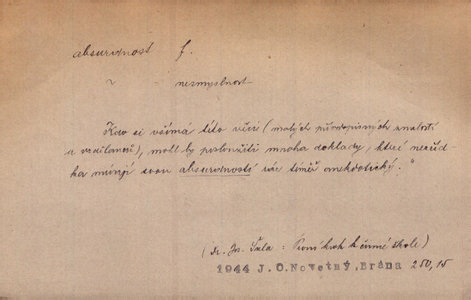 absurdnost f.
~ nesmyslnost
Kdo si všímá této věci (malých předepsaných znalostí
a vzdělanosti), mohl by posloužiti mnoha doklady, které nezříd-
ka mívají svou absurdností ráz téměř anekdotický."
(Dr. Jos. Šula: První krok k činné škole)
1944 J.O.Novotný,Brána 250,15